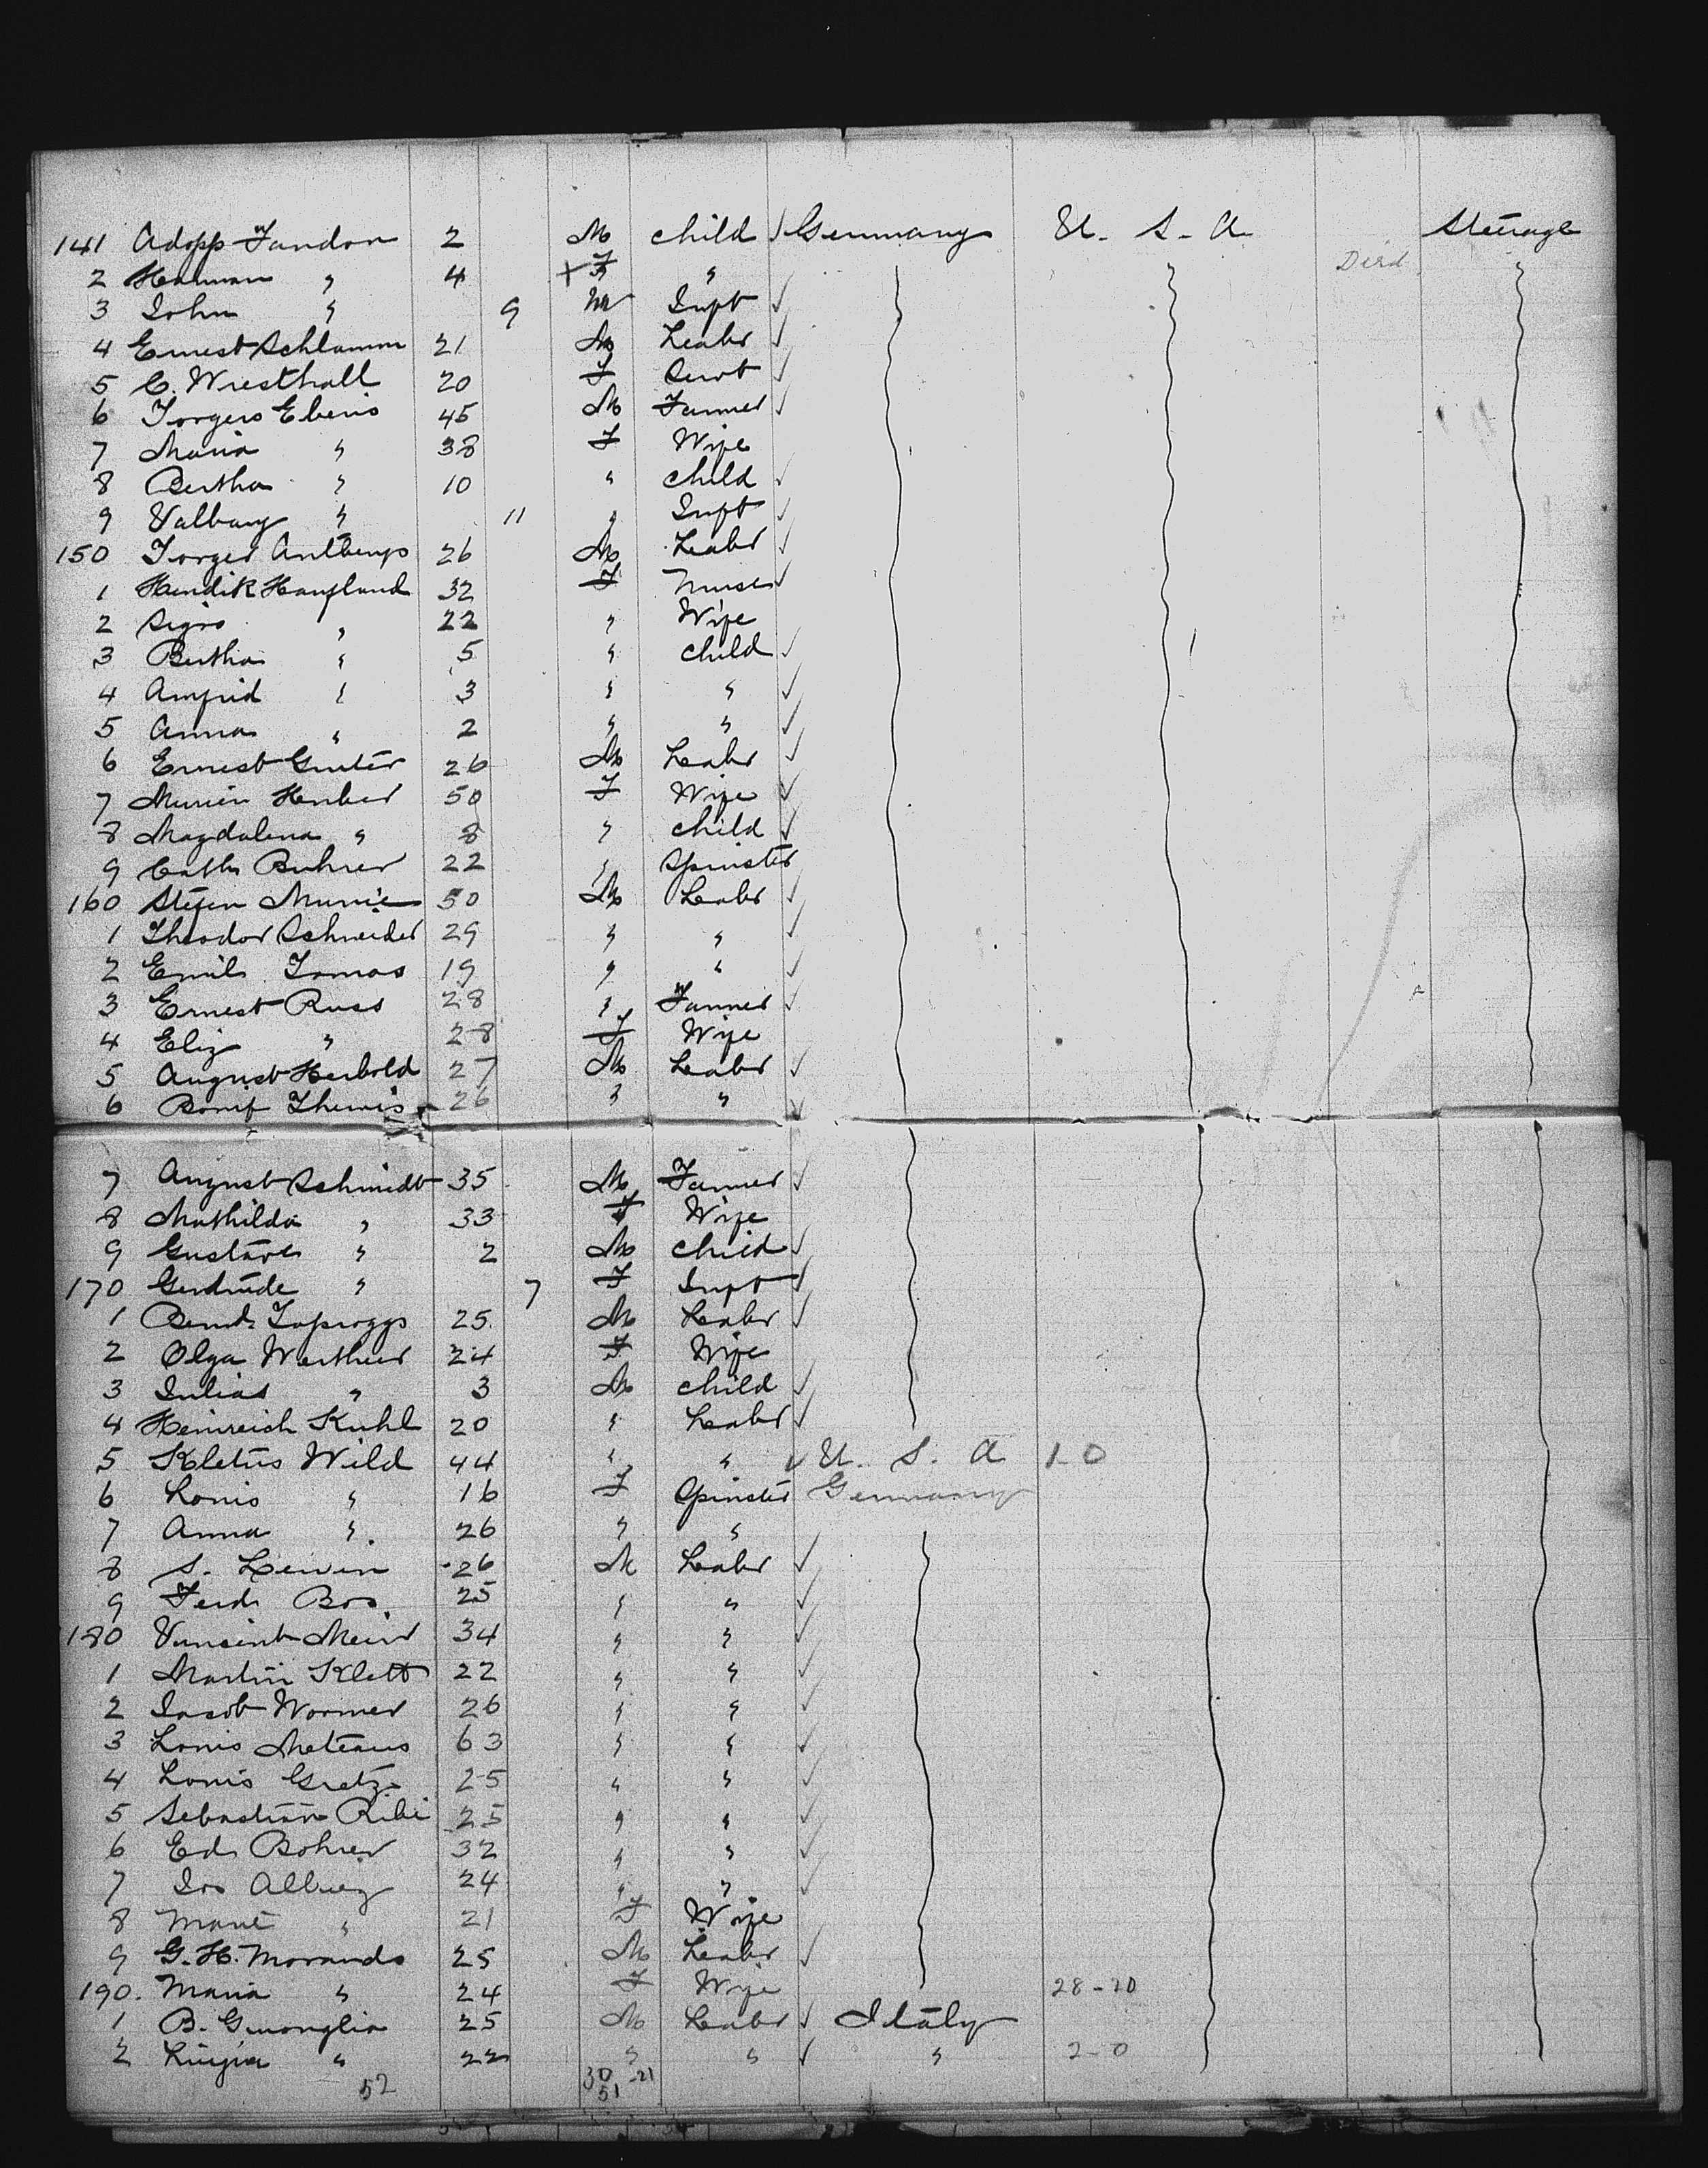 141 Adopp Fandon 2 M child √ Germany U. S. A Steerage
2 Herman " 4 + F " √ Died
3 John " 9 M Inft √
4 Ernest Schlamm 21 M Labr √
5 C. Wresthall 20 F Servt √
6 Torgers Eberis 45 M Farmer √
7 Maria " 38 F Wife
8 Bertha " 10 " child √
9 Valbarg " 11 " Inft √
150 Torger 26 M Labr √
1 Hendik Haufland 32 F Nurse √
2 Signo " 22 " Wife
3 Bertha " 5 " child √
4 Amfrid " 3 " " √
5 Anna " 2 " " √
6 Ernest Gruter 26 M Labr √
7 Herber 50 F Wife √
8 Magdalena " 8 " child √
9 Cath Buhrer 22 " Spinster
160 Munie 50 M Labr √
1 Theodor Schneider 29 " " √
2 Emile Tomas 19 " " √
3 Ernest Russ 28 " Farmer √
4 Eliz " 28 F Wife
5 August Herbold 27 M Labr √
6 Bonif Thewis 26 " " √
7 August Schmidt 35 M Farmer √
8 Mathilda " 33 F Wife
9 Gustave " 2 M child √
170 Gertrude " 7 F Inft √
1 25 M Labr √
2 Olga Werthier 24 F Wife
3 Julias " 3 M child √
4 Heinreich Kuhl 20 " Labr √
5 Kletus Wild 44 " " √ U. S. A 1-0
6 Louis " 16 F Spinster Germany
7 Anna " 26 " "
8 S. Lewin 26 M Labr √
9 Ferd Bos. 25 " " √
180 Vinsent Meir 34 " " √
1 Martin Klett 22 " " √
2 Jacob Wormer 26 " " √
3 Louis Meteaus 63 " " √
4 Louis Gretz 25 " " √
5 Sebastian Ribi 25 " " √
6 Ed Bohrer 32 " " √
7 Jos Albiez 24 " " √
8 Marie " 21 F Wife
9 G. H. Morando 25 M Labr √
190. Maria " 24 F Wife 28-20
1 B. Gwonglia 25 M Labr √ Italy
2 Luigia " 22 " " √ " 2-0
52 30 -21
51